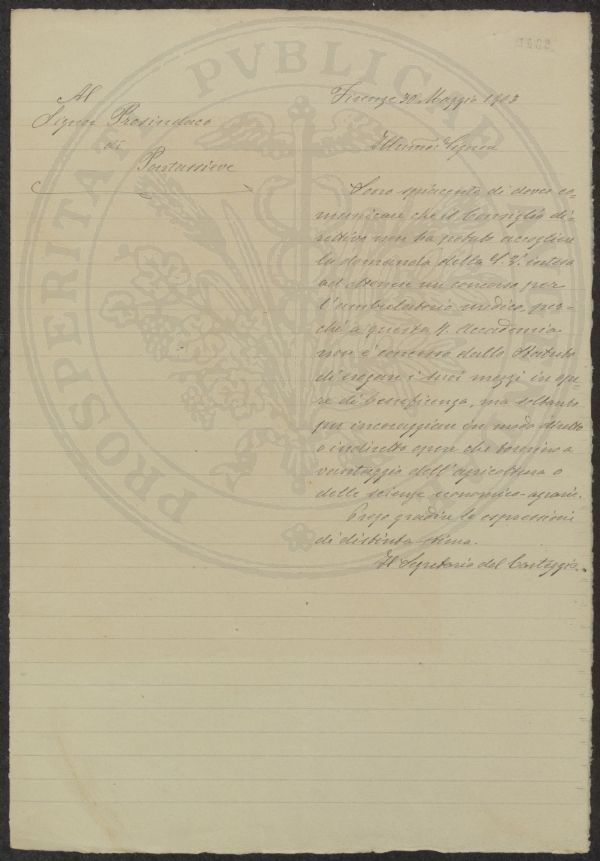 Al
Signor Prosindaco
di
Pontassieve
Firenze 30 Maggio 1903
Illmo: Signore
Sono spiacente di dover co=
municare che il Consiglio di=
rettivo non ha potuto accogliere
la domanda della S. V. intesa
ad ottenere un concorso per
l'ambulatorio medico per=
chè a questa R. Accademia
non è concesso dallo Statuto
di erogare i suoi mezzi in ope=
re di beneficenza, ma soltanto
per incoraggiare in modo diretto
o indiretto opere che tornino a
vantaggio dell'agricoltura o
delle scienze economico-agrarie.
Prego gradire le espressioni
di distinta stima.
Il Segretario del Carteggio
PROSPERITATI PVBLICAE